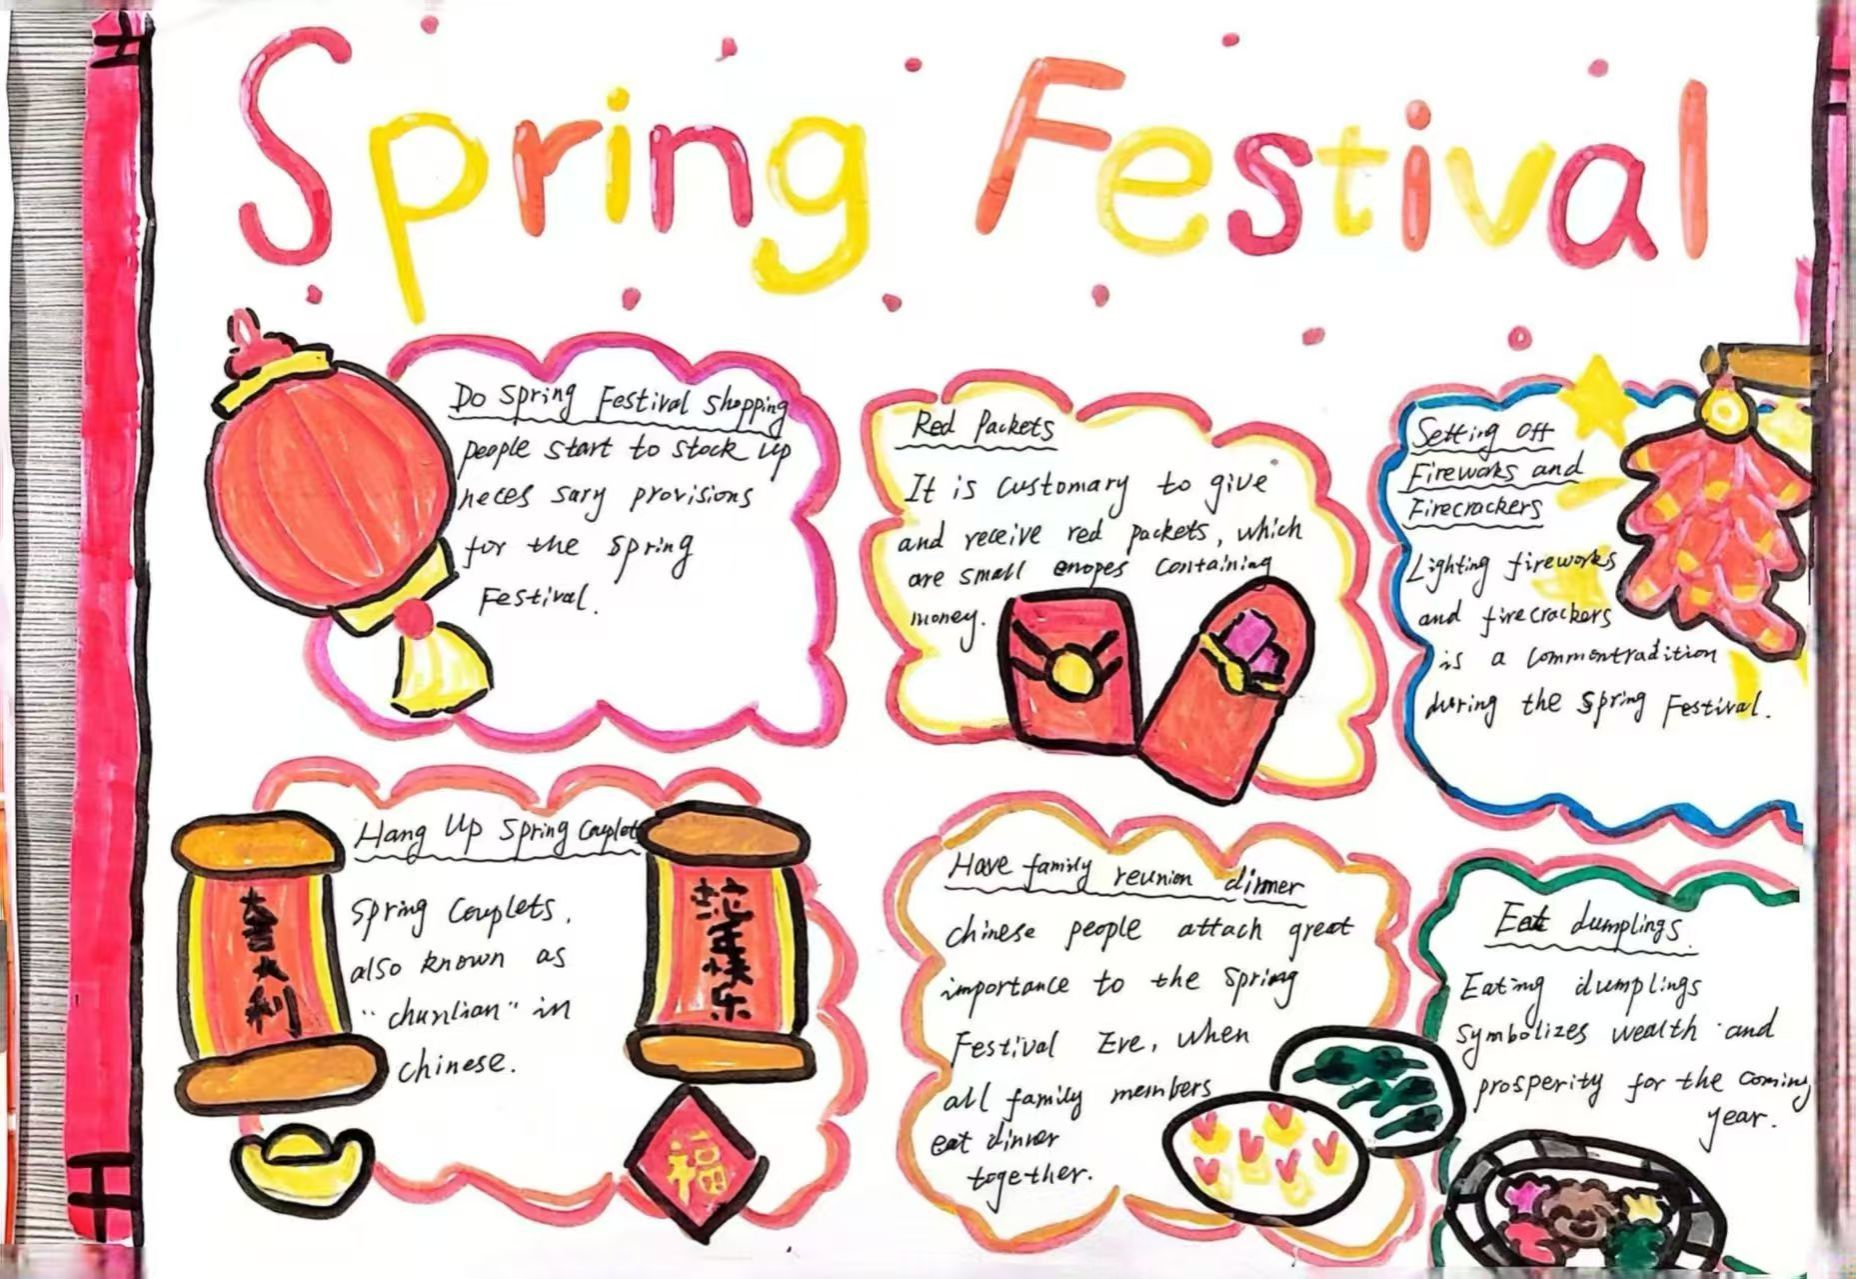 Spring Festival
Do Spring Festival shopping
people start to stock up
neces sary provisions
for the spring
Festival.
Red Packets
It is customary to give
and receive red packets, which
are small enopes containing
money.
Setting off
Fireworks and
Firecrackers
Lighting fireworks
and firecrackers
is a commontradition
during the Spring Festival.
Hang Up Spring Couplet
Spring Couplets,
also known as
"chunlian" in
chinese.
大吉大利
蛇年快乐
福
Have family reunion dinner
chinese people attach great
importance to the Spring
Festival Eve, when
all family members
eat dinner
together.
Eat dumplings.
Eating dumplings
symbolizes wealth and
prosperity for the coming
year.